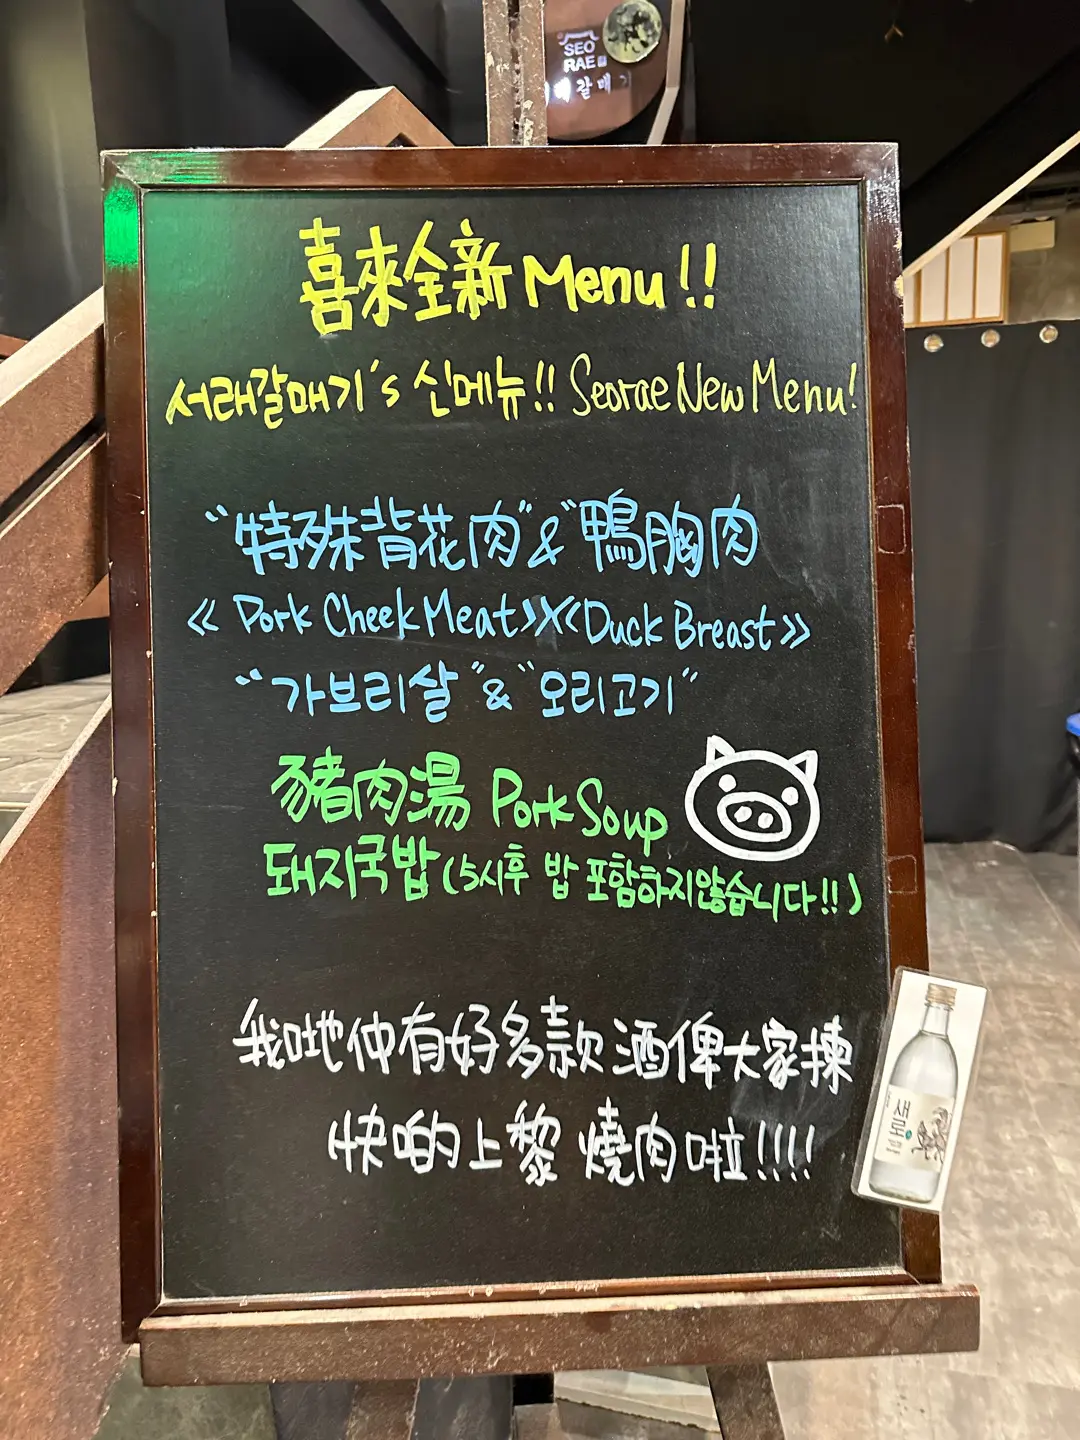 SEO
RAE
갈매기
喜來全新 Menu!!
서래갈매기's 신메뉴!! Seorae New Menu!
"特殊背花肉" & "鴨胸肉
《 Pork Cheek Meat>X<Duck Breast》
"가브리살" & "오리고기"
豬肉湯 Pork Soup
돼지국밥 (5시후 밥 포함하지않습니다!!)
我哋仲有好多款酒俾大家揀
快啲上黎 燒肉啦!!!!
새로